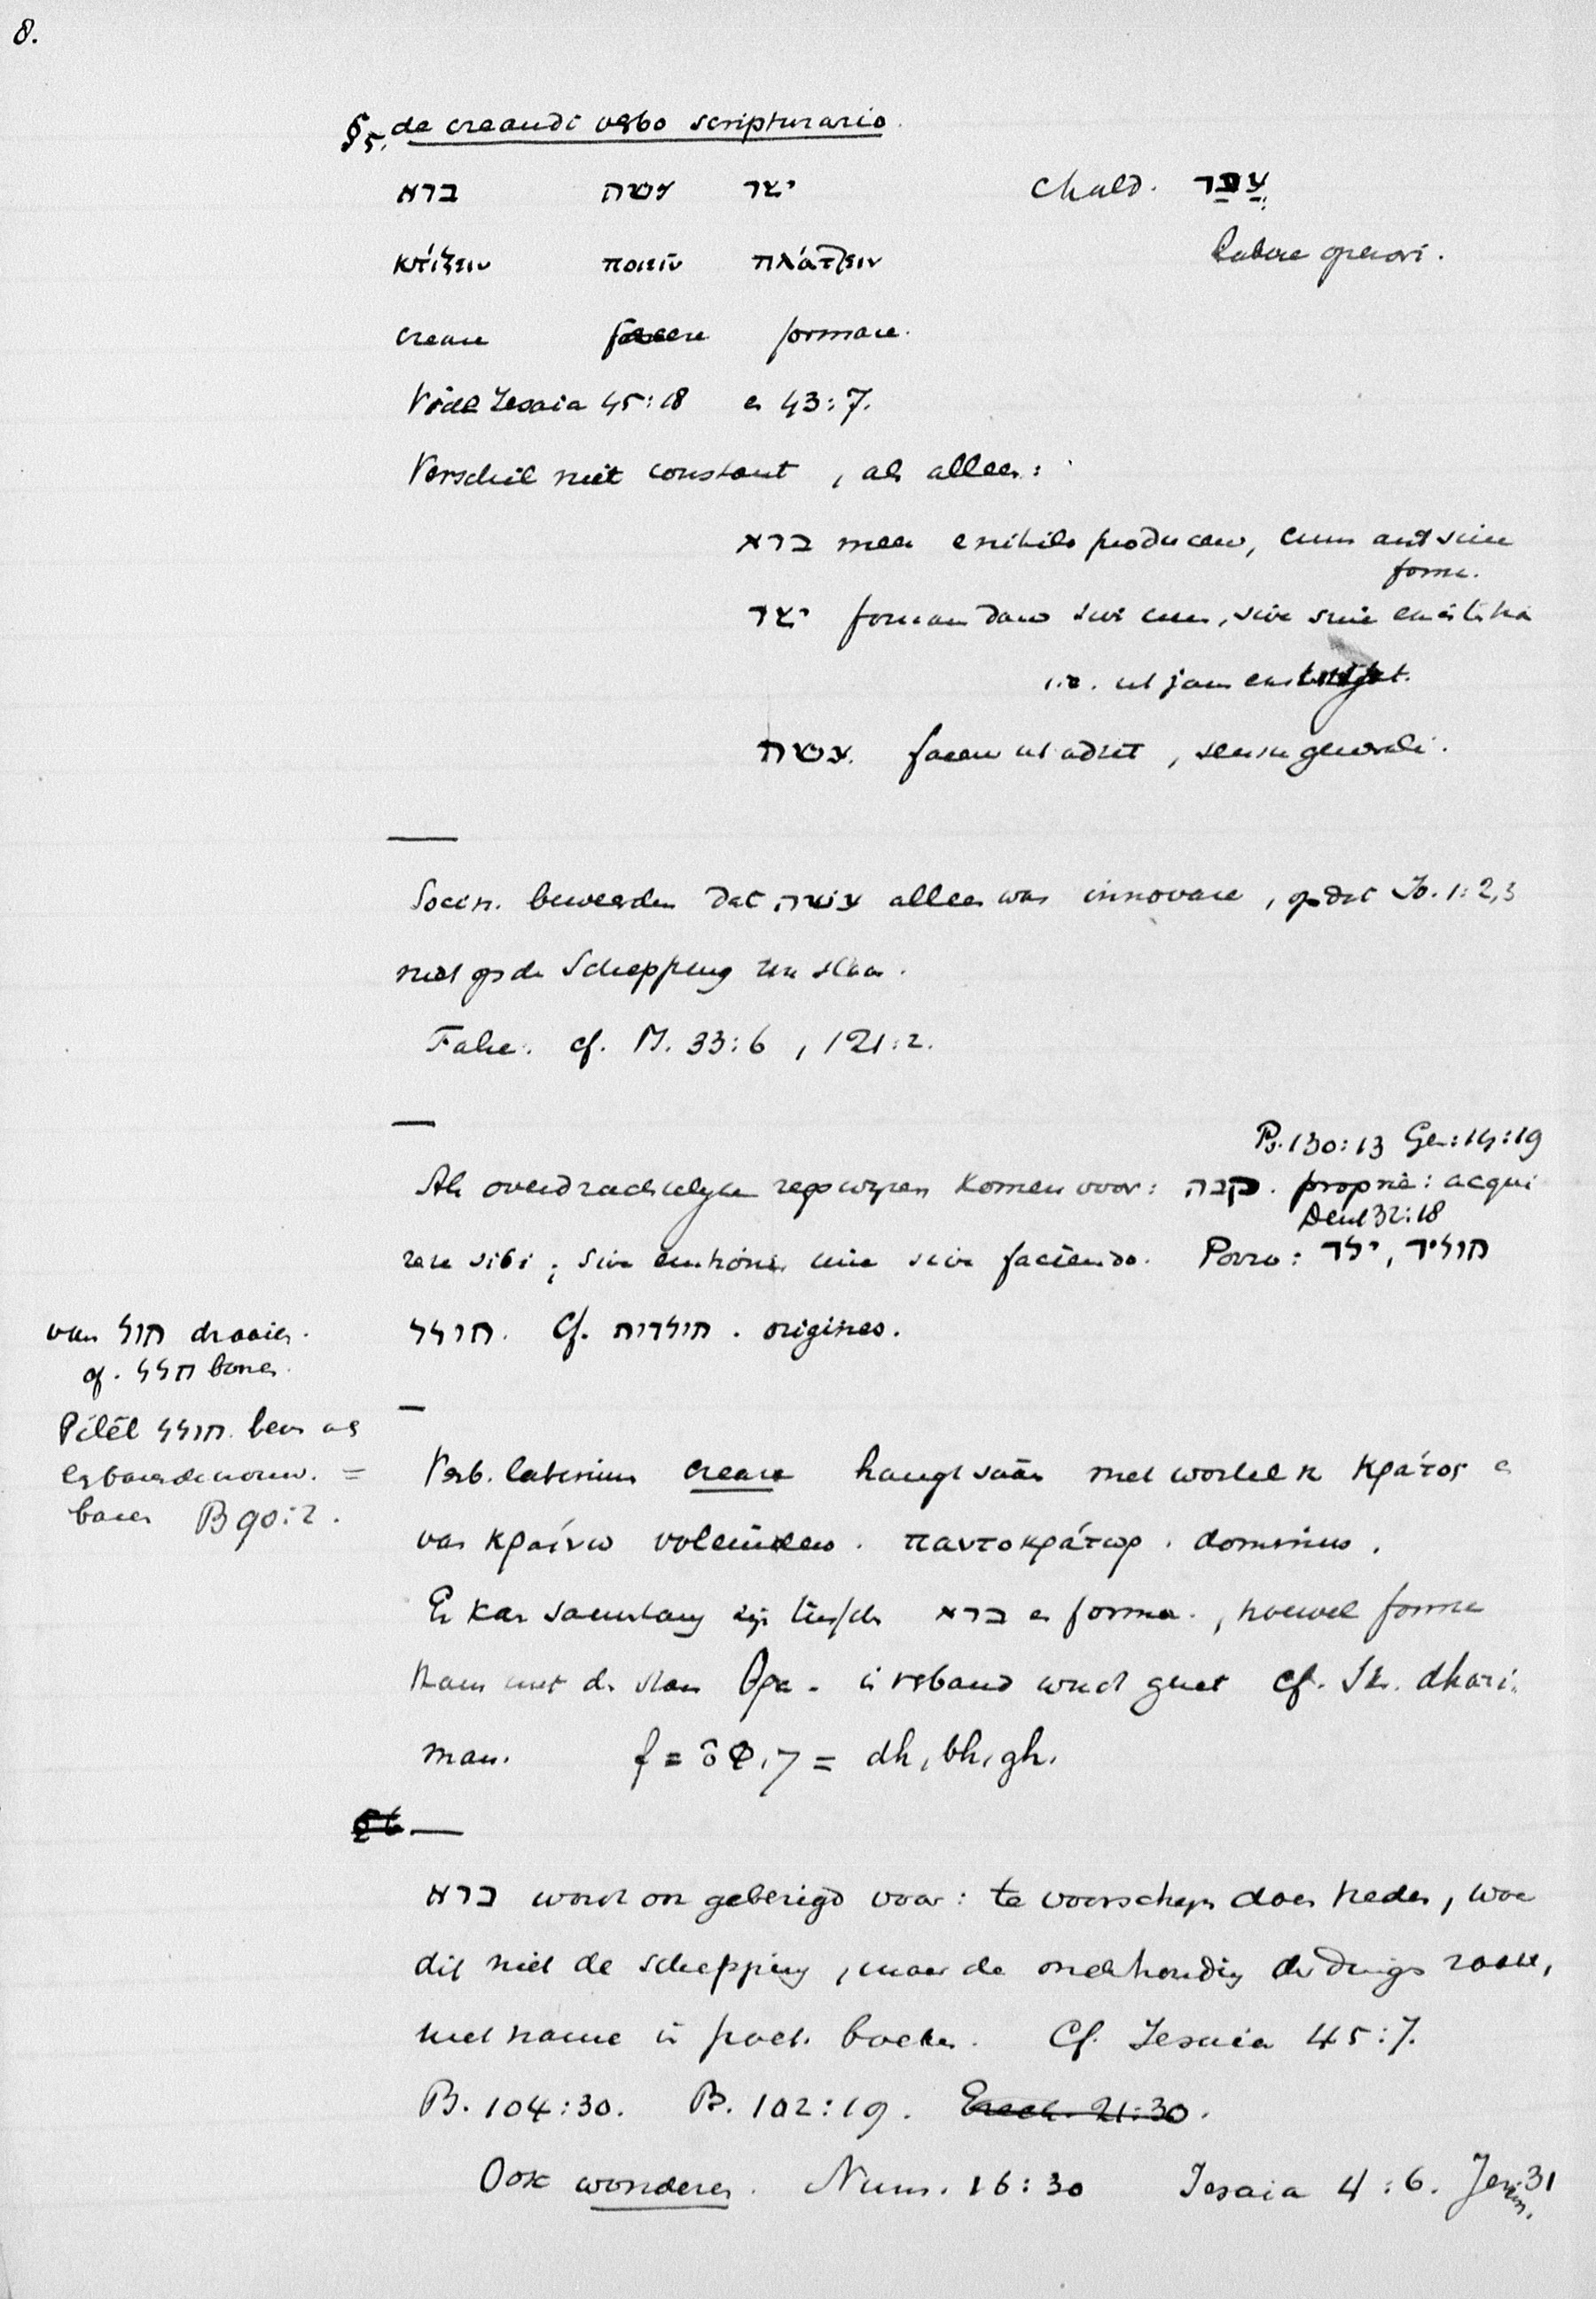 8.
§5. de creandi verbo scripturario.
ברא עשה יצר Chald. עבד
κτίζειν ποιεῖν πλάττειν labore operari.
creare facere formare.
Vide Jesaia 45:18 en 43:7.
Verschil niet constant, als alleen:
ברא meer e nihilo producere, cum aut sine
form.
יצר formandam sive cum, sive sine
i.e. ut jam
עשה. facere ut adsit, sensu generali.
Socin. beweerden dat עשה alleen was innovare, opdat Jo. 1:2,3
niet op de Schepping zou slaan.
False. cf. Ps. 33:6, 121:2.
Ps. 130:13 Gen: 14:19
Als overdrachtelijke zegswijzen komen voor: קנה. proprie: acqui
Deut 32:18
rere sibi; sive emtione sive faciendo. Porro: ילד, חוליד
חולל. Cf. תולדות. origines.
van חול draaien.
cf. חלל boren.
Pilēl חולל. van de
barende vrouw. =
baren Ps 90:2.
Verb. latinum creare hangt saâm met wortel v. κράτος en
van κραίνω voleinden. παντοκράτωρ. dominus.
Er kan samenhang zijn tusschen ברא en forma., hoewel forma
naam met de stam θρα- in verband wordt gezet cf. Skr. dhari-
man. f = θ φ, γ = dh, bh, gh.
ברא wordt ook gebezigd voor: te voorschijn doen treden, waar
dit niet de schepping, maar de onderhouding der dingen raakt,
met name in poet. boeken. Cf. Jesaia 45:7.
Ps. 104:30. Ps. 102:19. Ezech. 21:30.
Ook wonderen. Num. 16:30 Jesaia 4:6. Jerem. 31